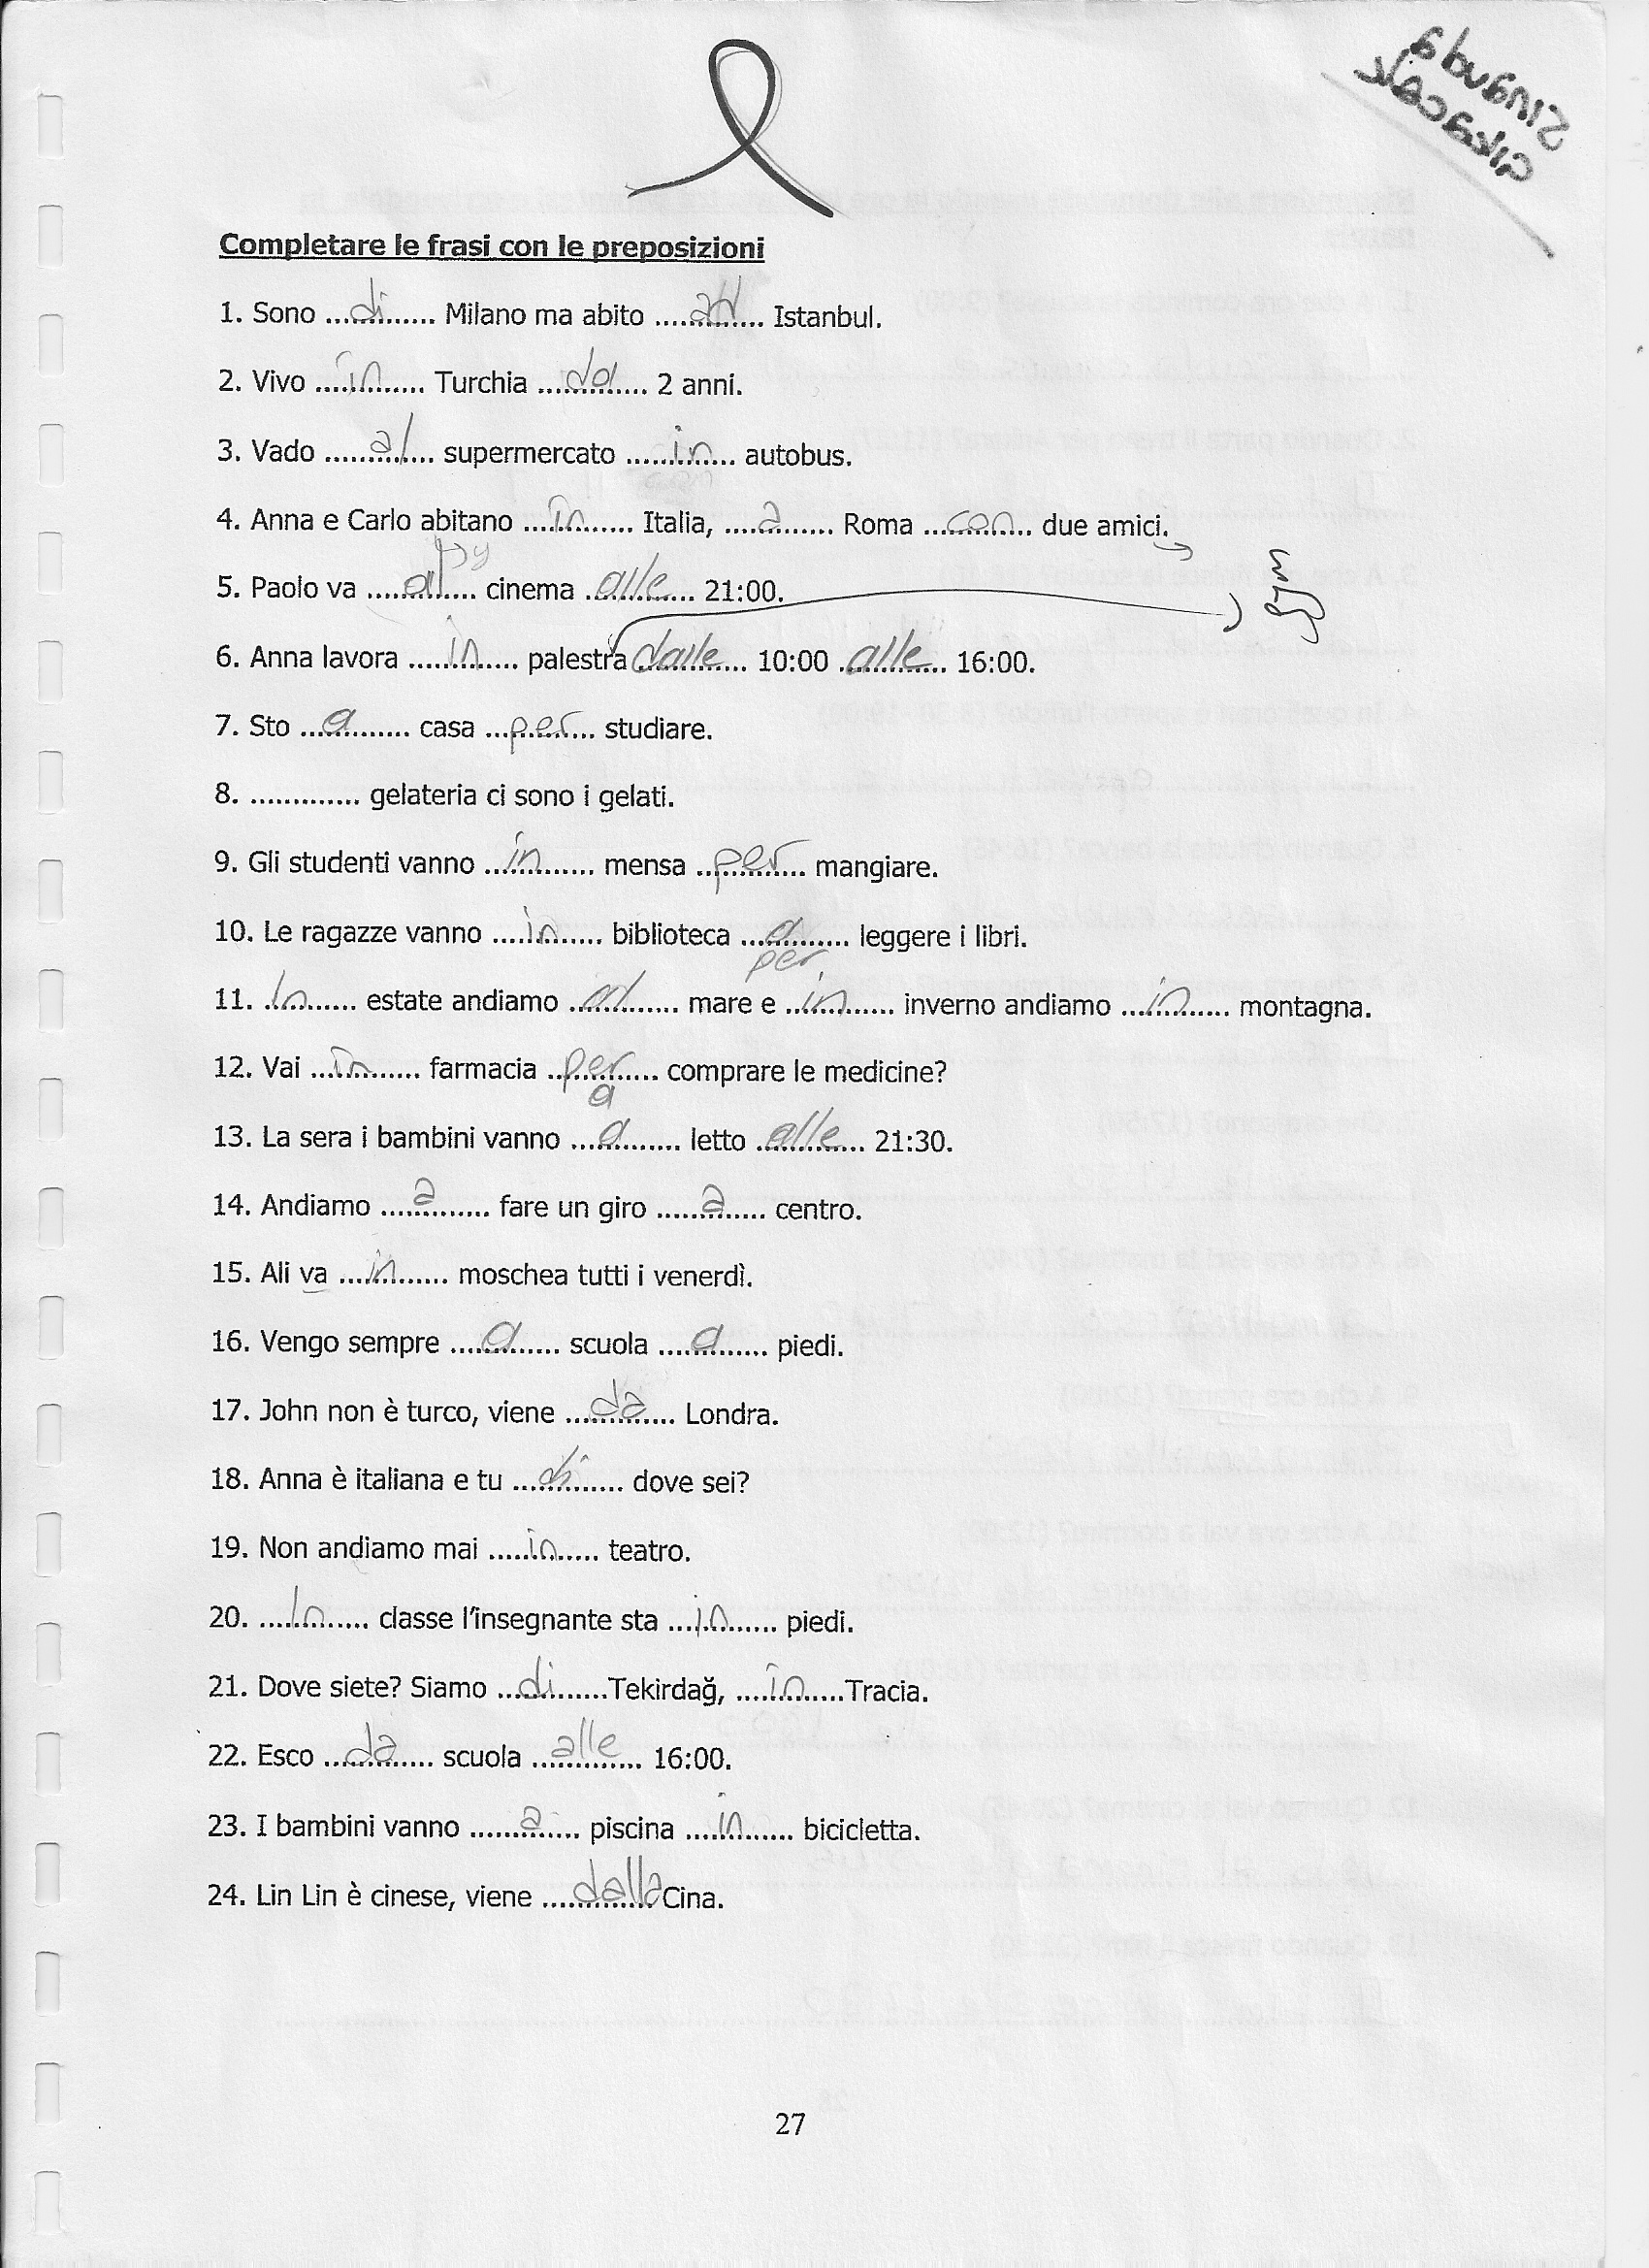 Sınavda
çıkacak
Completare le frasi con le preposizioni
1. Sono ...di... Milano ma abito ...ad... Istanbul.
2. Vivo ...in... Turchia ...da... 2 anni.
3. Vado ...al... supermercato ...in... autobus.
con
4. Anna e Carlo abitano ...in... Italia, ...a... Roma ...con... due amici.
5. Paolo va ...al... cinema ...alle... 21:00.
gym
6. Anna lavora ...in... palestra ...dalle... 10:00 ...alle... 16:00.
7. Sto ...a... casa ...per... studiare.
8. ............. gelateria ci sono i gelati.
9. Gli studenti vanno ...in... mensa ...per... mangiare.
10. Le ragazze vanno ...in... biblioteca ...a... leggere i libri.
per
11. ...In... estate andiamo ...al... mare e ...in... inverno andiamo ...in... montagna.
12. Vai ...in... farmacia ...per... comprare le medicine?
a
13. La sera i bambini vanno ...a... letto ...alle... 21:30.
14. Andiamo ...a... fare un giro ...a... centro.
15. Ali va ...in... moschea tutti i venerdì.
16. Vengo sempre ...a... scuola ...a... piedi.
17. John non è turco, viene ...da... Londra.
18. Anna è italiana e tu ...di... dove sei?
19. Non andiamo mai ...in... teatro.
20. ...In... classe l'insegnante sta ...in... piedi.
21. Dove siete? Siamo ...di...Tekirdağ, ...in...Tracia.
22. Esco ...da... scuola ...alle... 16:00.
23. I bambini vanno ...a... piscina ...in... bicicletta.
24. Lin Lin è cinese, viene ...dalla Cina.
27